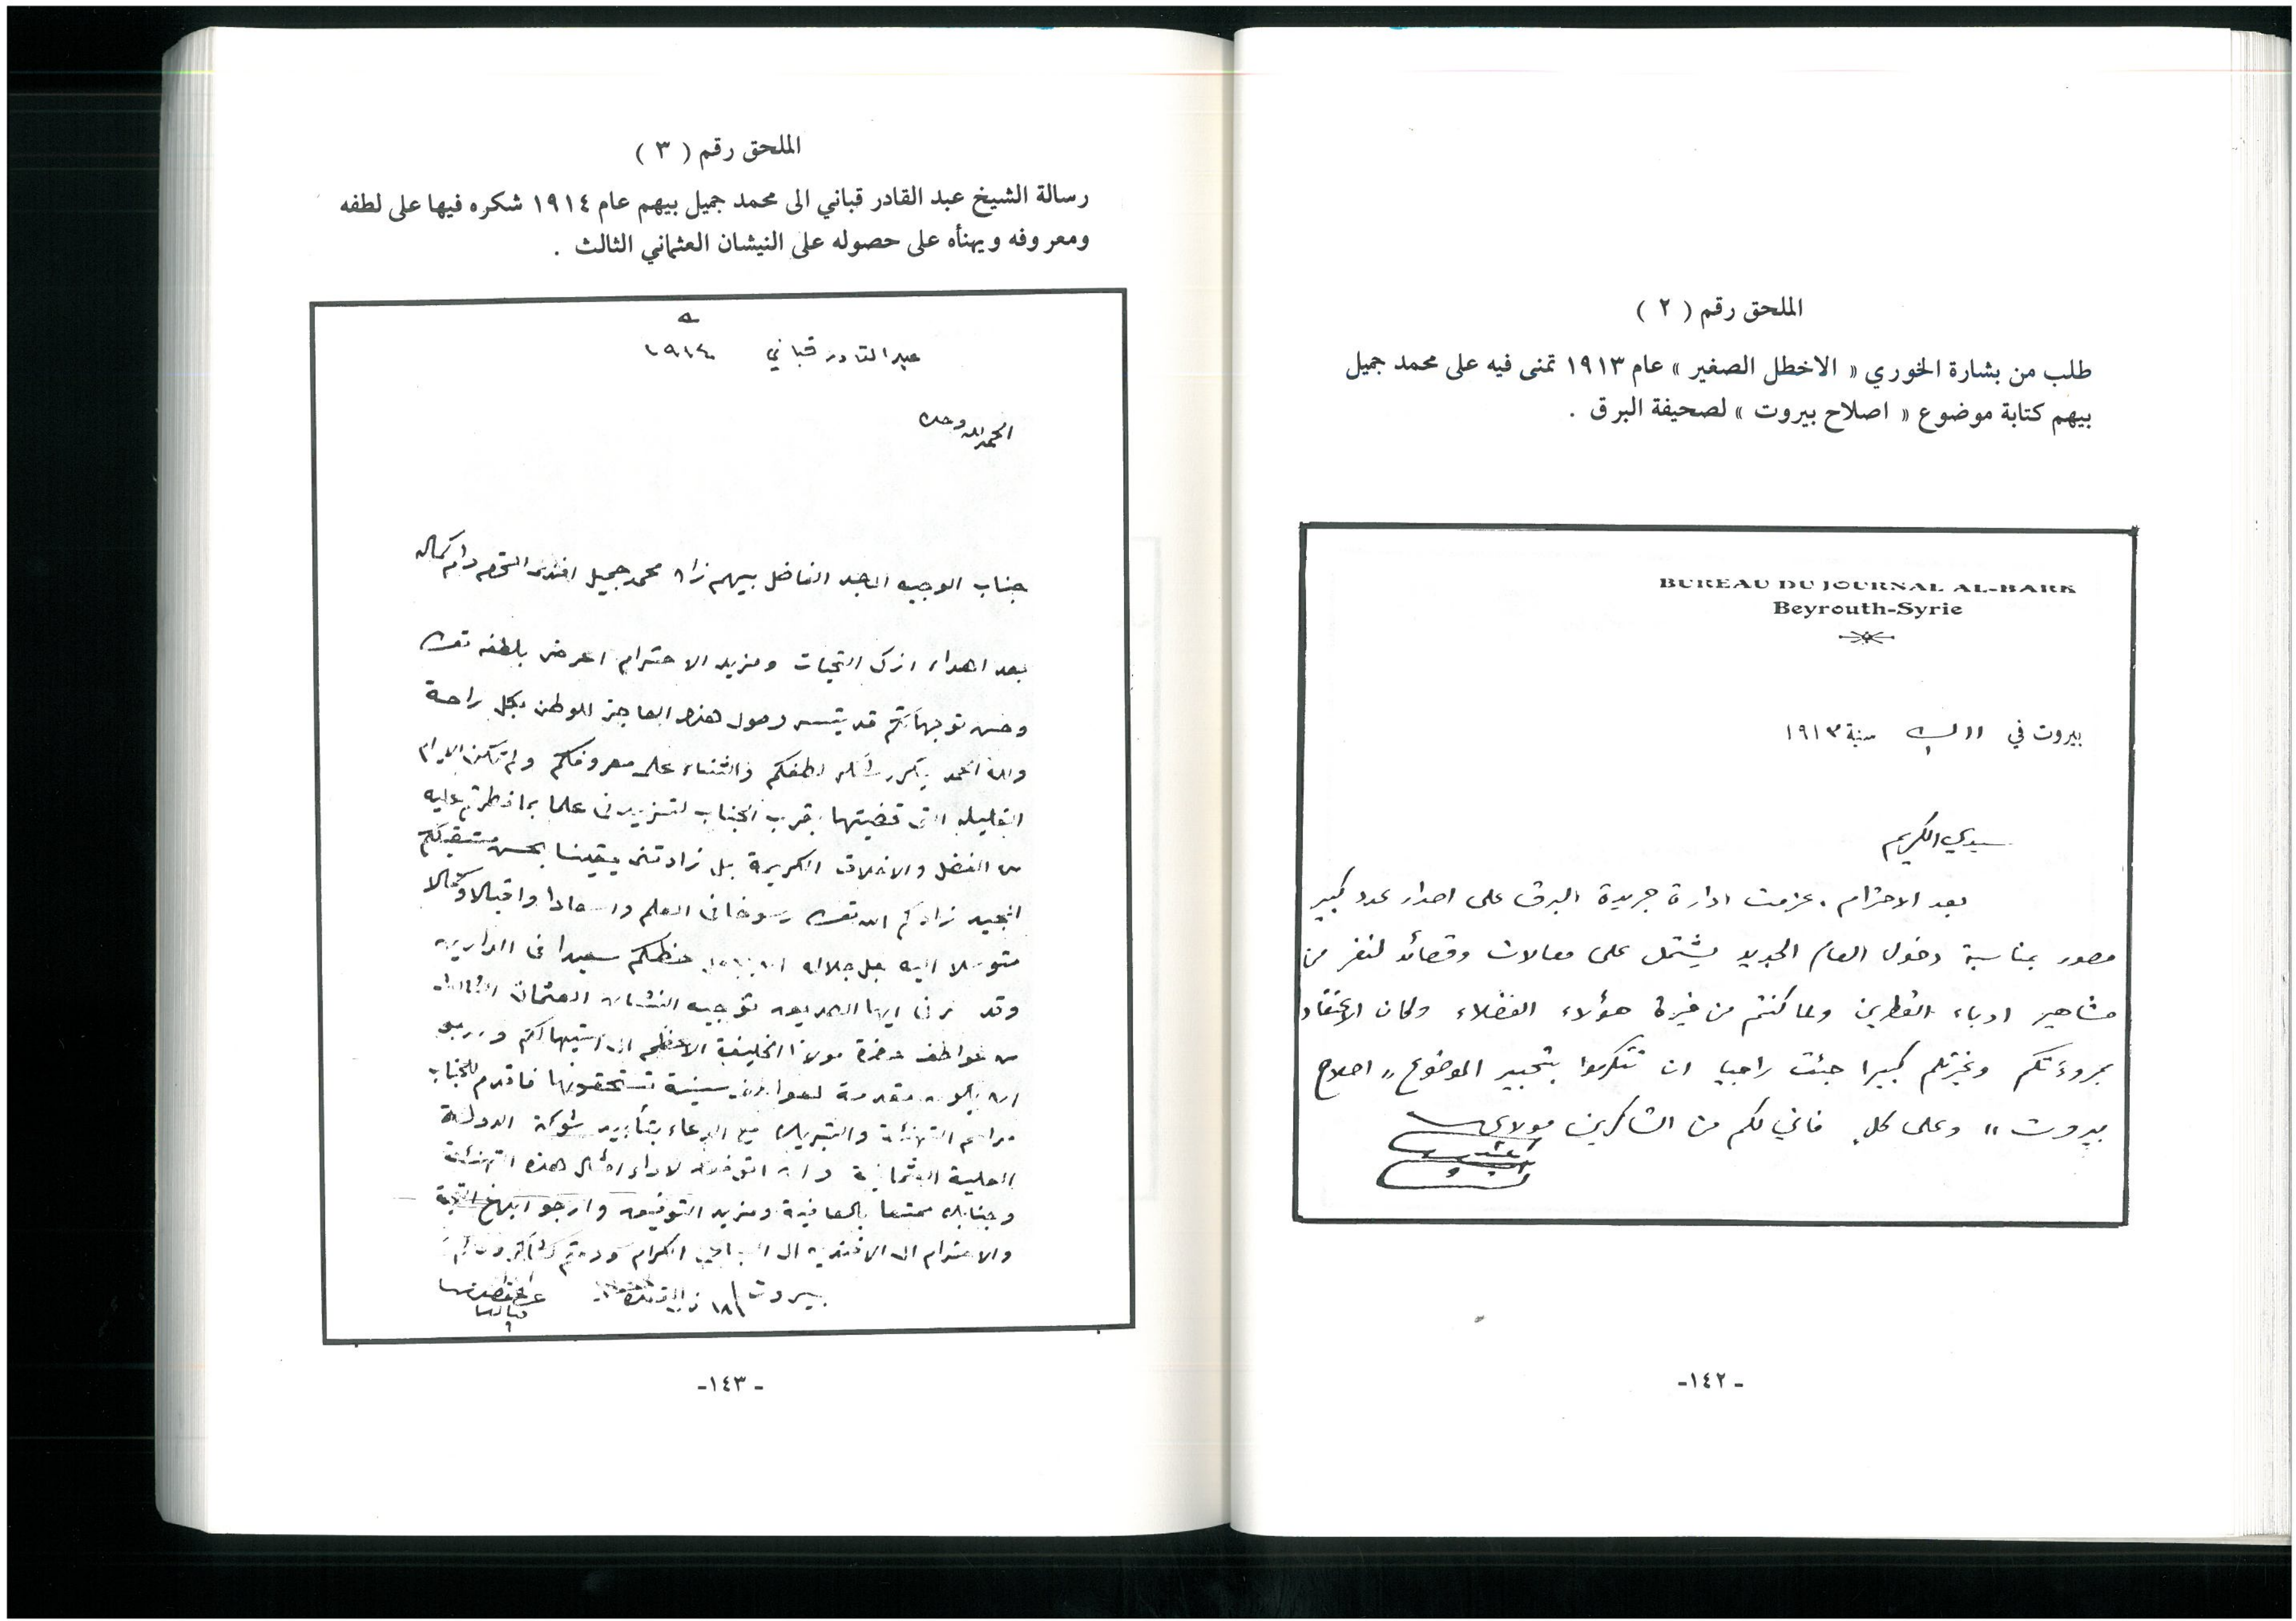 الملحق رقم ( ٢ )
طلب من بشارة الخوري « الاخطل الصغير » عام ١٩١٣ تمنى فيه على محمد جميل
بيهم كتابة موضوع « اصلاح بيروت » لصحيفة البرق .
BUREAU DU JOURNAL AL-BARK
Beyrouth-Syrie
بيروت في ١١ سنة ١٩١٣
سيدي الكريم
بعد الاحترام . عزمت ادارة جريدة البرق على اصدار عدد كبير
مصور بمناسبة دخول العام الجديد يشتمل على مقالات وقصائد لنفر من
مشاهير ادباء القطرين ولما كنتم من خيرة هؤلاء الفضلاء وكان الاعتقاد
بمروءتكم وغيرتكم كبيرا جئت راجيا ان تتكرموا بتحبير الموضوع " اصلاح
بيروت " وعلى كل فاني لكم من الشاكرين مولاي
- ١٤٢-
الملحق رقم ( ٣ )
رسالة الشيخ عبد القادر قباني الى محمد جميل بيهم عام ١٩١٤ شكره فيها على لطفه
ومعروفه ويهنأه على حصوله على النيشان العثماني الثالث .
عبد القادر قباني ١٩١٤
الحمد لله وحده
جناب الوجيه الماجد الفاضل بيهم زاده محمد جميل افندي المحترم دام كماله
بعد اهداء ازكى التحيات ومزيد الاحترام اعرض بلطفه تعالى
وحسن توجهاتكم قد تيسر وصول هذا العاجز للوطن بكل راحة
ولله الحمد لطفكم والثناء على معروفكم ولم تكن الايام
القليله التى قضيتها بقرب الجناب لتزيدنى علما بما فطرتم عليه
من الفضل والاخلاق الكريمة بل زادتنى يقينا بحسن مستقبلكم
المجيد زادكم الله تعالى رسوخا فى العلم واسعادا واقبالا وكمالا
متوسلا اليه جل جلاله ان حفظكم سعيدا فى الدارين
وقد ايها الصديق توجيه النشان العثمانى الثالث
من عواطف حضرة مولانا الخليفة الاعظم
ان يكون مقدمة سنية تستحقونها فاقدم للجناب
مراسم التهنئة والتبريك مع الدعاء بتأييد شوكة الدولة
العلية العثمانية وان لاداء امثال هذه التهنئة
وجنابك ممتعا بالعافية ومزيد التوفيق وارجو ابلاغ التحية
والاحترام الى الكرام ودمتم
بيروت ١٨
- ١٤٣-